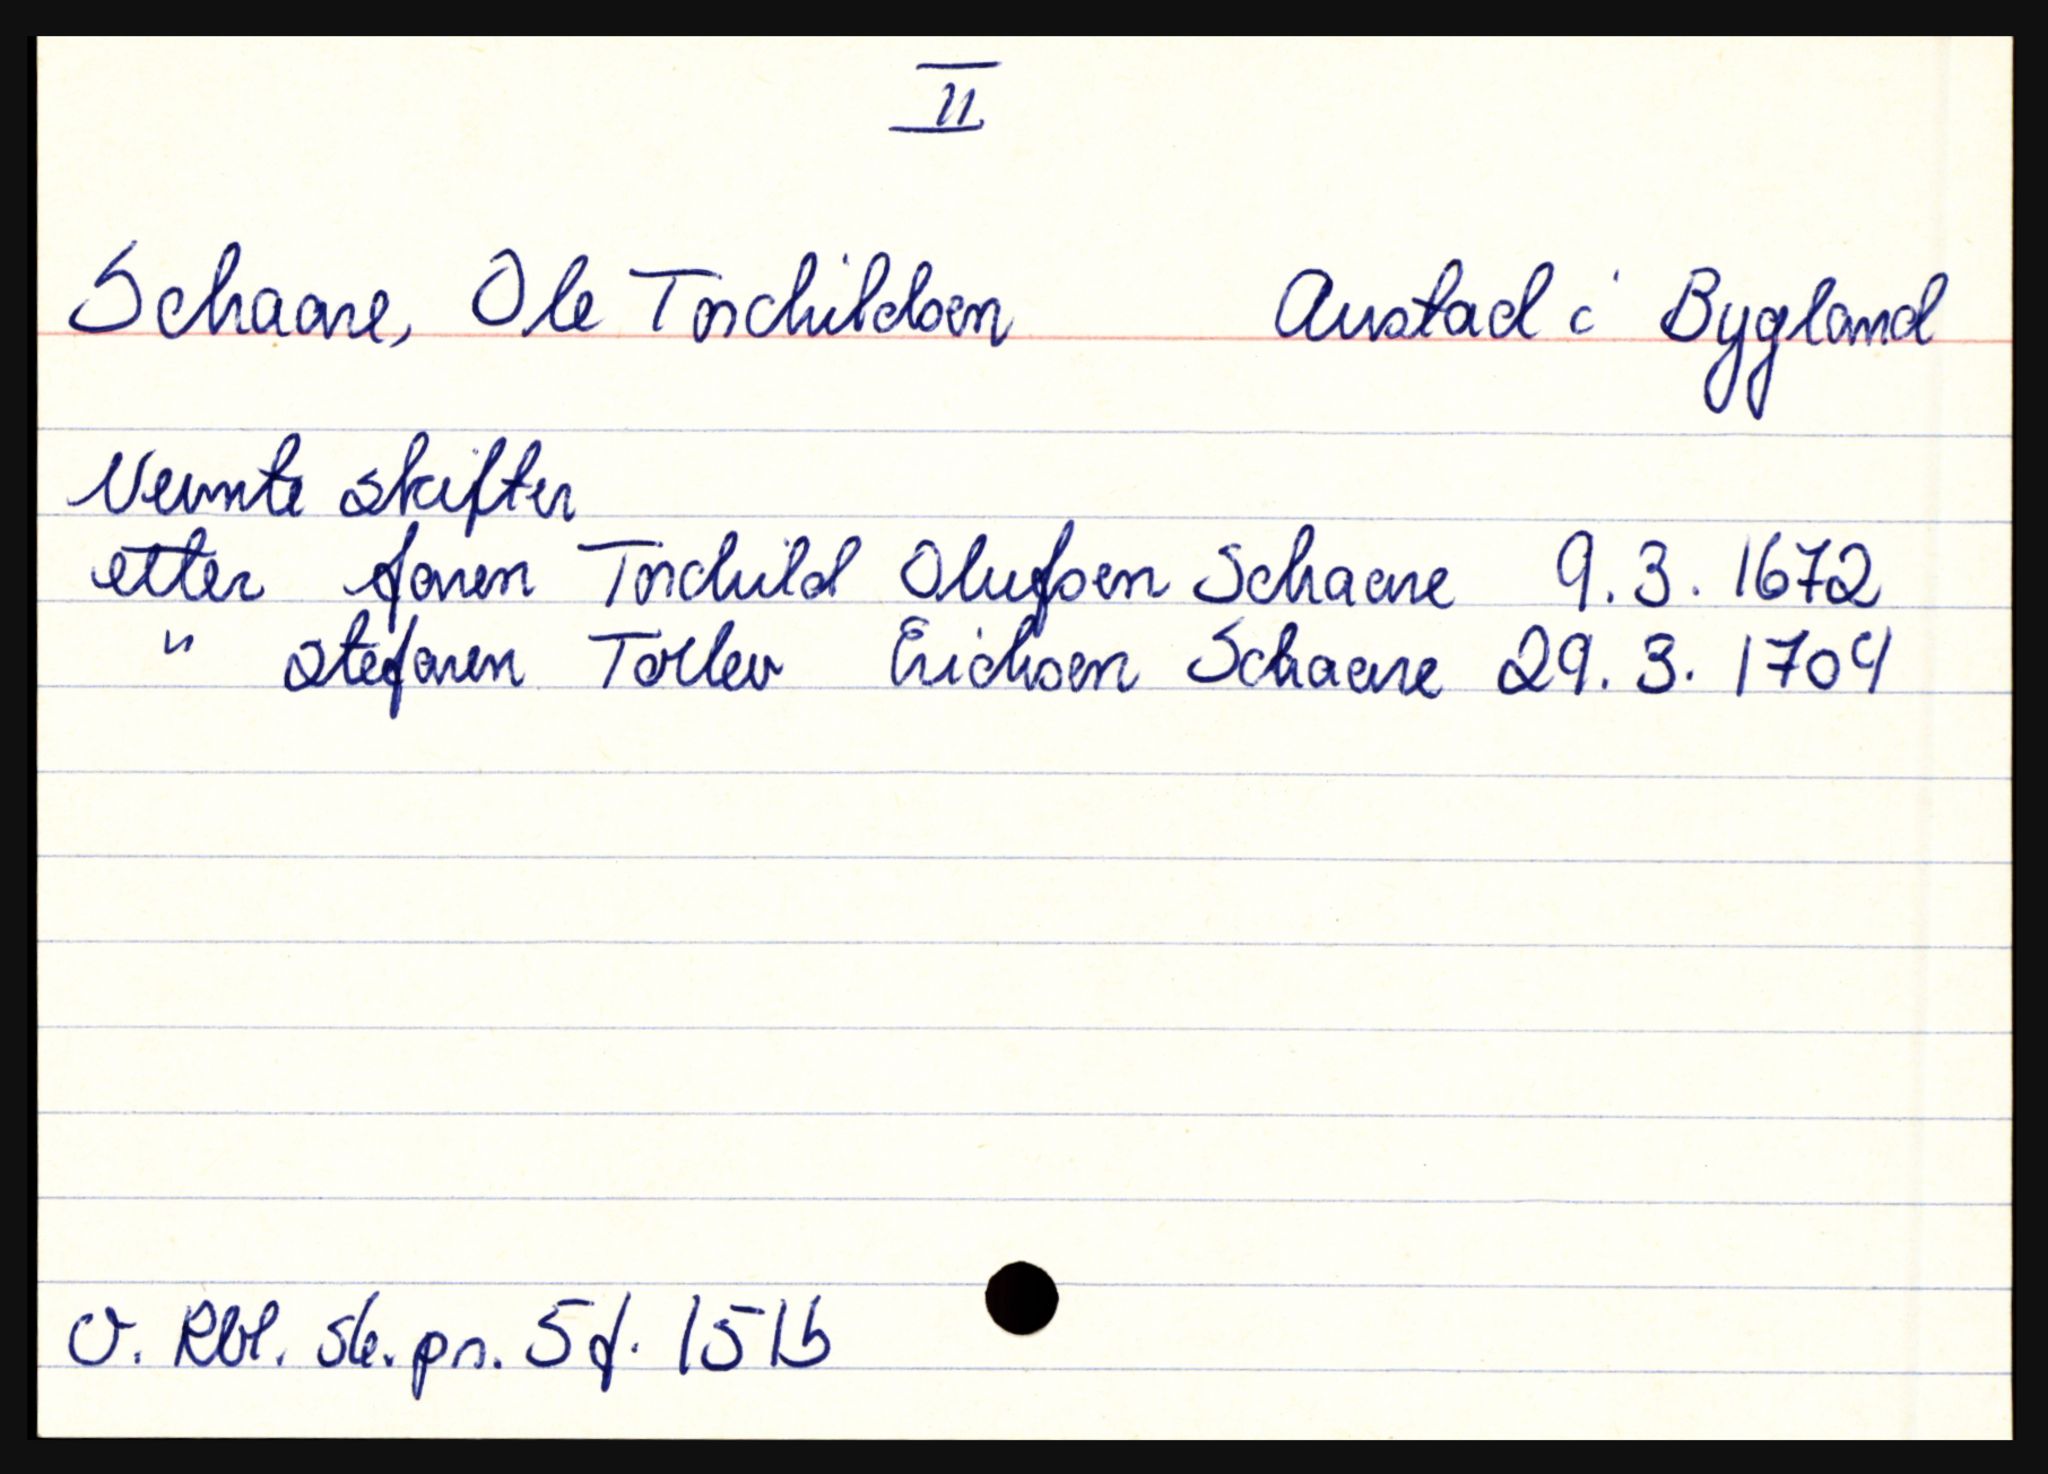 II
Schaare, Ole Torchildsen Austad i Bygland
Nevnte skifter
etter faren Torchild Olufsen Schaare 9.3.1672
" stefaren Tollev Erichsen Schaare 29.3.1704
V. Rbl. sk.pr. 5 f. 151b